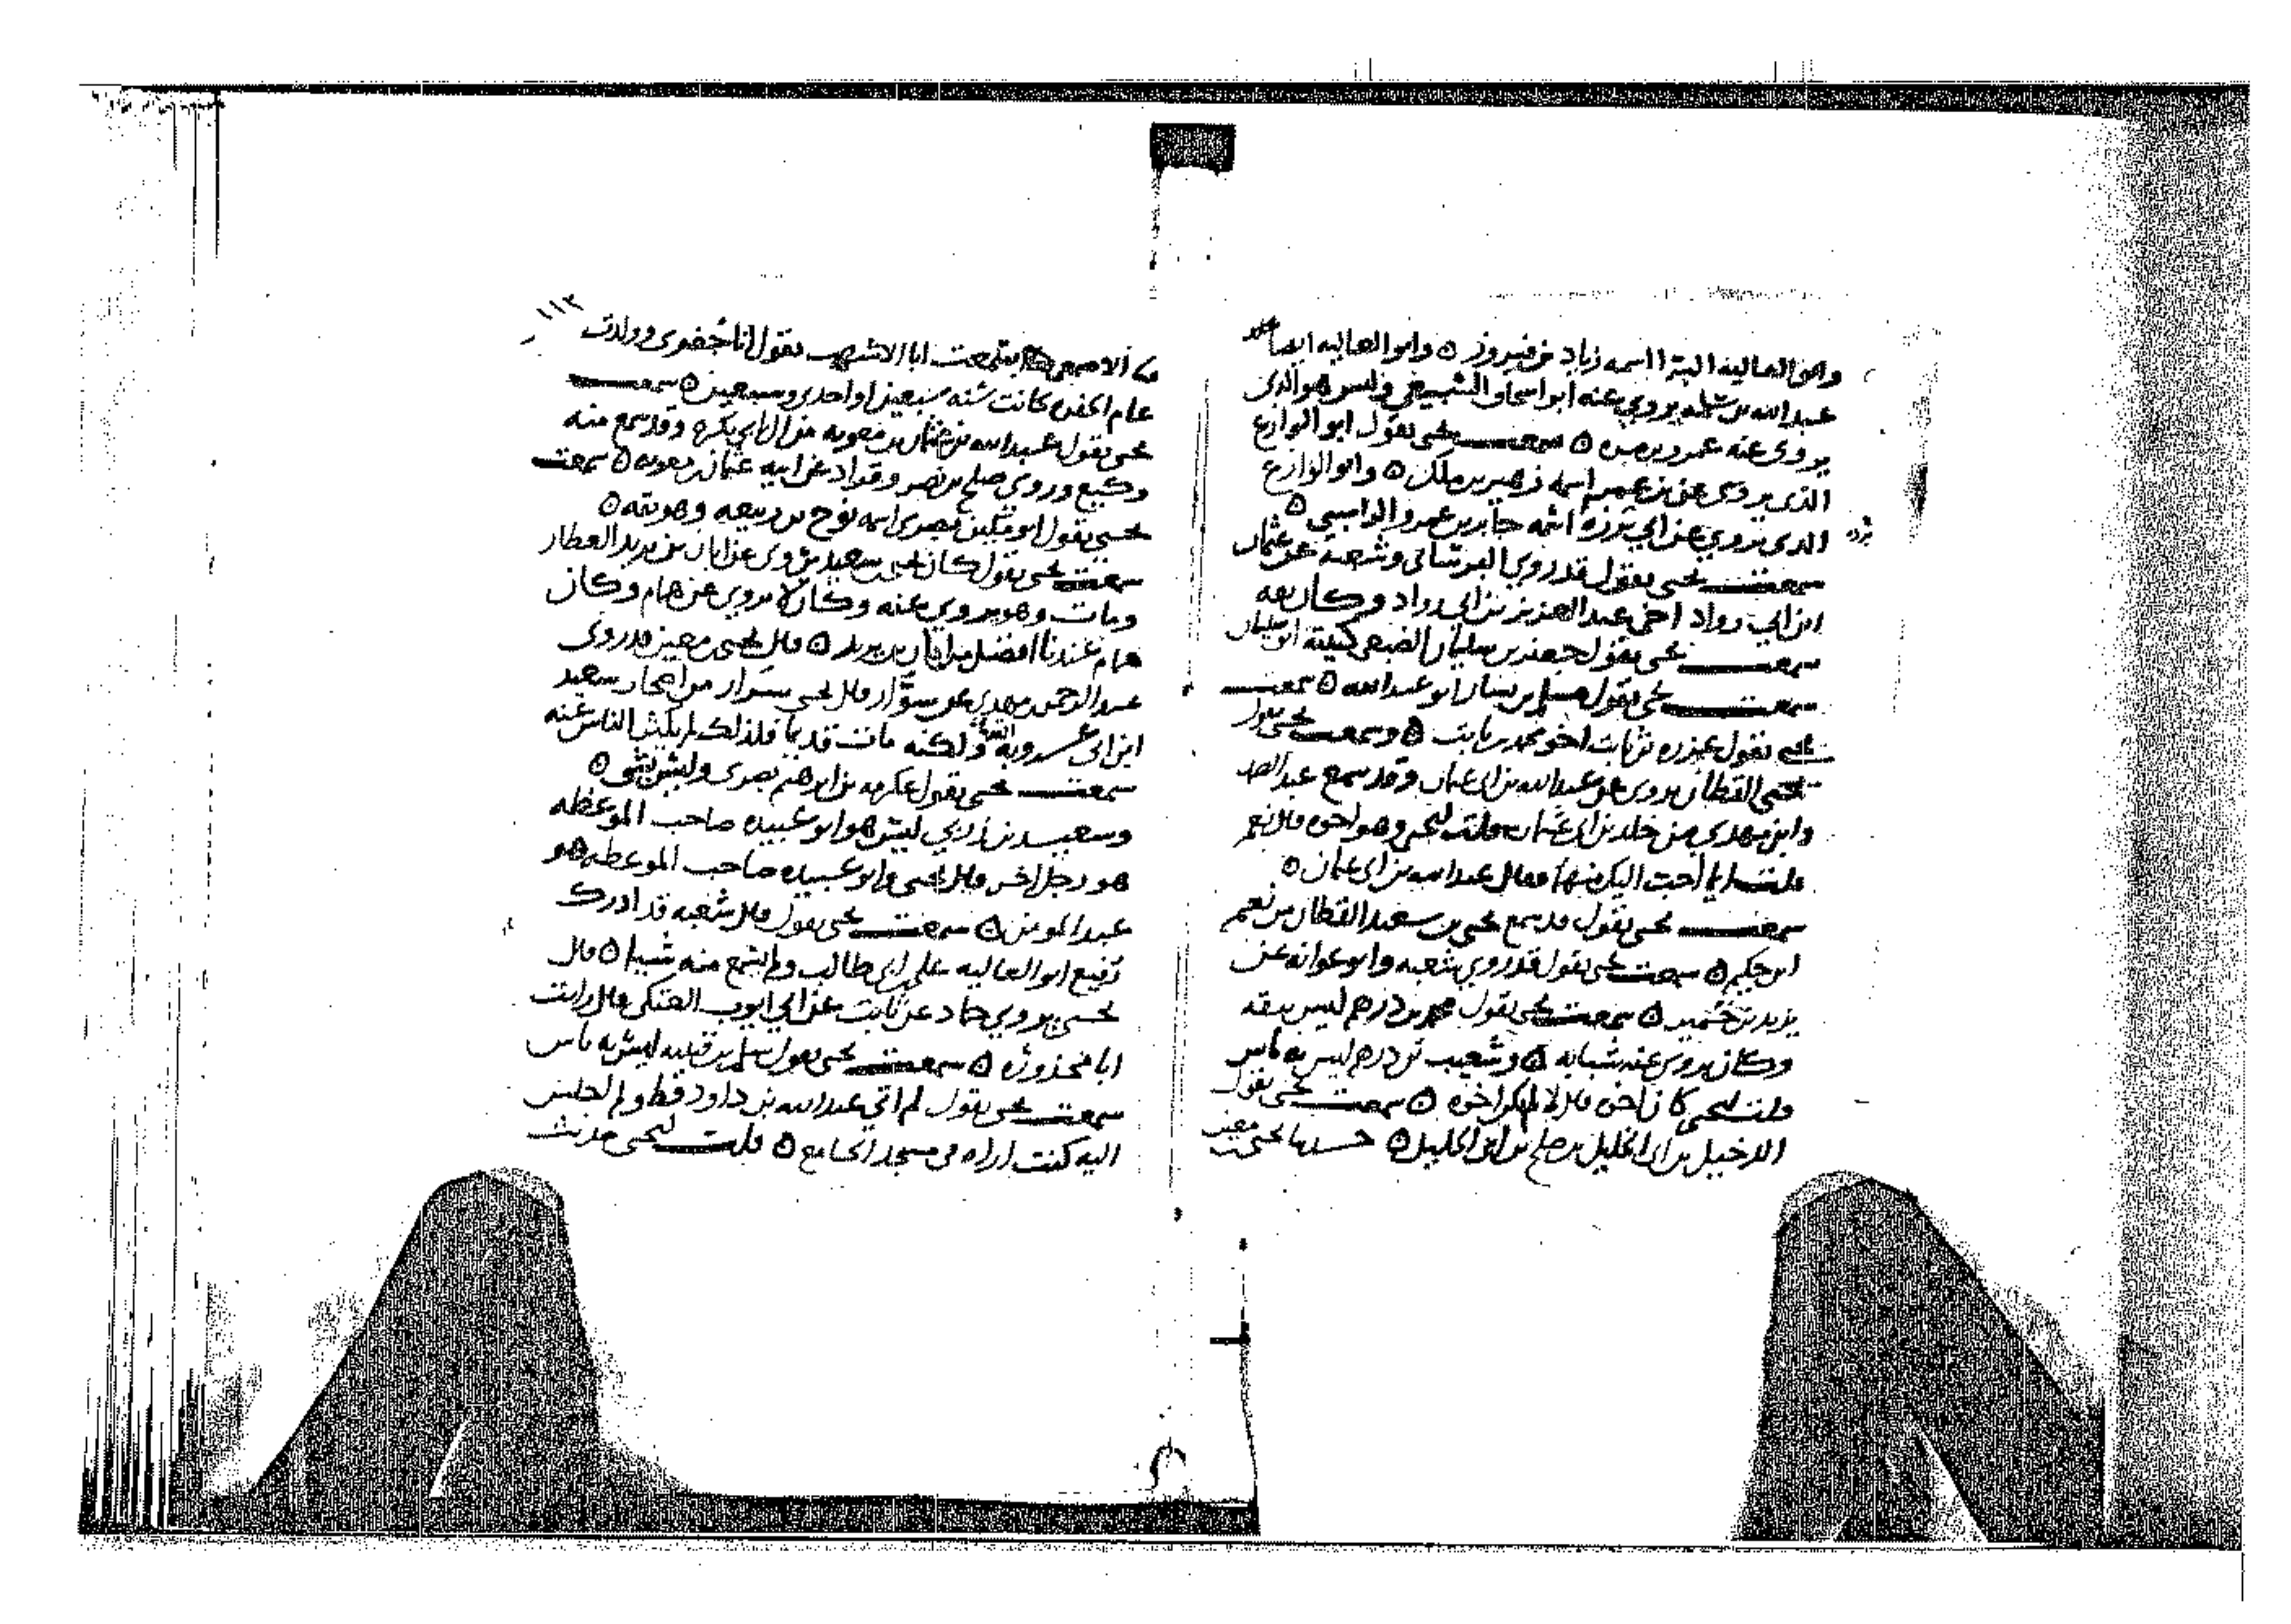 وابو العاليه البرا اسمه زياد بن فيروز ٥ وابو العاليه ايضا
عبد الله بن سلمه يروي عنه ابو اسحاق السبيعي وليس هو الذي
يروى عنه عمرو بن مره ٥ سمعت يحيى يقول ابو الوازع
الذى يروى عن بن عمر اسمه زهير بن ملك ٥ وابو الوازع
الذى يروي عن ابي برزه اسمه جابر بن عمرو الراسبي ٥
برزه
سمعت يحيى يقول قد روى البرساني وشعبه عن عثمان
ابن ابي رواد اخى عبد العزيز بن ابي رواد وكان ثقه
سمعت يحيى يقول جعفر بن سليمان الضبعي كنيته ابو سليمان
سمعت يحيى يقول مسلم بن يسار ابو عبد الله ٥ سمعت
يحيى يقول عزره بن ثابت اخو محمد بن ثابت ٥ وسمعت يحيى يقول
يحيى القطان يروى عن عبد الله بن ابى عثمان وقد سمع عبد الصمد
وابن مهدي من خلد بن ابي عثمان قلت ليحيى وهو اخوه قال نعم
قلت ايما احب اليك منهما فقال عبد الله بن ابى عثمان ٥
سمعت يحيى يقول قد سمع يحيى بن سعيد القطان من نعيم
ابن حكيم ٥ سمعت يحيى يقول قد روى شعبه وابو عوانه عن
يزيد بن خمير ٥ سمعت يحيى يقول محمد بن درهم ليس بثقه
وكان يروى عنه شبابه ٥ وشعيب بن درهم ليس به باس
قلت ليحيى كان اخوه قال لا لم يكن اخوه ٥ سمعت يحيى يقول
الدخيل بن ابى الخليل بن صلح بن ابى الخليل ٥ حدثنا يحيى بن معين
١١٣
الاصمعي قال سمعت ابا الاشهب يقول انا جعفرى وولدت
عام الجفره كانت سنه سبعين او احدى وسبعين ٥ سمعت
يحيى يقول عبد الله بن عثمان بن معويه من ال ابي بكره وقد سمع منه
وكيع وروى صلح بن نصر وقراد عن ابيه عثمان بن معويه ٥ سمعت
يحيى يقول ابو مكين بصرى اسمه نوح بن ربيعه وهو ثقه ٥
سمعت يحيى يقول كان يحيى بن سعيد يروى عن ابان بن يزيد العطار
ومات وهو يروى عنه وكان لا يروى عن همام وكان
همام عندنا افضل من ابان بن يزيد ٥ قال يحيى بن معين قد روى
عبد الرحمن بن مهدى عن سوار قال يحيى سوار من اصحاب سعيد
ابن ابى عروبه ولكنه مات قديما فلذلك لم يكثر الناس عنه
سمعت يحيى يقول عكرمه بن ابرهيم بصرى وليس بشى ٥
وسعيد بن زربي ليس هو ابو عبيده صاحب الموعظه
هو رجل اخر قال يحيى وابو عبيده صاحب الموعظه هو
عبد المومن ٥ سمعت يحيى يقول قال شعبه قد ادرك
رفيع ابو العاليه على بن ابى طالب ولم يسمع منه شيا ٥ قال
يحيى يروى حماد عن ثابت عن ابي ايوب العتكى قال رايت
ابا محذوره ٥ سمعت يحيى يقول سلم بن قتيبه ليس به باس
سمعت يحيى يقول لم اتى عبد الله بن داود قط ولم اجلس
اليه كنت اراه فى مسجد الجامع ٥ قلت ليحيى حديث